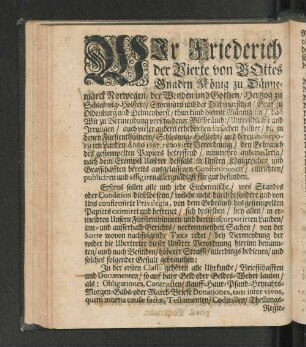 WIr Friederich
der Vierte von GOttes
Gnaden König zu Dänne-
marck Norwegen/ der Wenden und Gothen/ Hertzog zu
Schleswig-Holstein/ Stormarn und der Dithmarschen/ Graf zu
Oldenburg und Delmenhorst/ thun kund hiemit Männiglich/ daß
Wir zu Vermeidung verschiedener Mißbräuche/ Unterschleiffe und
Irrungen/ auch vieler anderen erheblichen Ursachen halber/ die in
denen Fürstenthümern/ Schleswig-Holstein und deren incorporir-
ten Landen Anno
des gestempelten Papiers betreffend/ nunmehro anderwärtig/
nach dem Exempel Unserer dessfals in Unsern Königreichen und
Graffschafften bereits ausgelassenen Constitutionen/ einrichten/
publiciren und allergnädigst für gut befunden.
Erstens sollen alle und jede Einheimische/ was Standes
oder Condition dieselbe seyn/ welche nicht durch besondere und von
Uns confirmirte Privilegia, von dem Gebrauch des gestempelten
Papiers eximiret und befreyet/ sich desselben/ bey allen/ in er-
meldten Unsern Fürstenthümern und deren incorporirten Landen/
inn- und ausserhalb Gerichts/ vorkommenden Sachen/ von der
Sorte wovon nachfolgende Taxa redet/ bey Vermeydung der
wider die Ubertreter dieser Unserer Verordnung hierinn benann-
ten/ auch nach Befinden/ höherer Straffe/ allerdings bedienen/ und
solches folgender Gestalt gebrauchen:
In der ersten Classe gehören alle Uhrkunde/ Brieffschafften
und Documenten/ so auf baar Geld oder Geldes-Wehrt lauten/
als: Obligationes, Contracten/ Kauff-Haur-Pfand-Heyraths-
Morgen-Gabs- oder Donationes, tam inter vivos,
quam mortis causa factæ, Testamenten/ Codicillen/ Theilungs-
Regis-